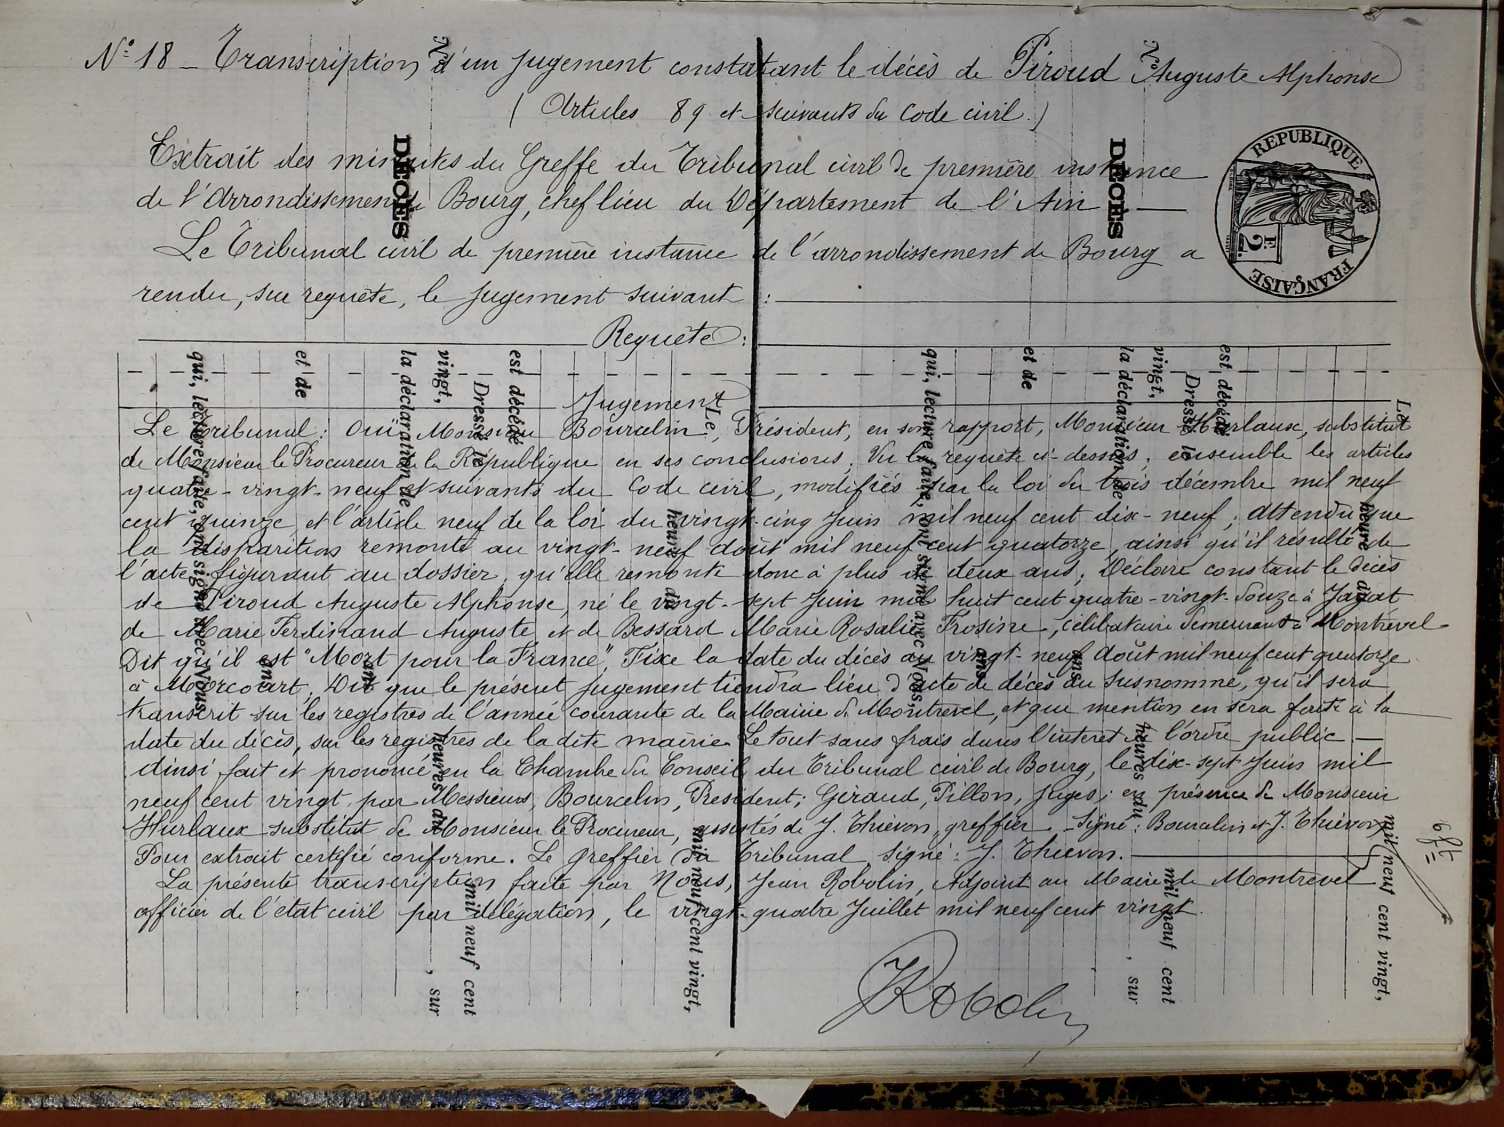 N° 18 - Transcription d'un jugement constatant le décès de Piroud Auguste Alphonse
( Articles 89 et suivants du Code civil. )
Extrait des minutes du Greffe du Tribunal civil de première instance
de l'Arrondissement de Bourg, chef lieu du Département de l'Ain
Le Tribunal civil de première instance de l'arrondissement de Bourg a
rendu, sur requête, le jugement suivant :
Requête :
Jugement
Le Tribunal : Ouï Monsieur Bourcelin, Président, en son rapport, Monsieur Hurlaux, substitut
de Monsieur le Procureur de la République en ses conclusions ; Vu la requête ci-dessus, ensemble les articles
quatre-vingt-neuf et suivants du Code civil, modifiés par la loi du trois décembre mil neuf
cent quinze et l'article neuf de la loi du vingt-cinq Juin mil neuf cent dix-neuf ; Attendu que
la disparition remonte au vingt-neuf août mil neuf cent quatorze, ainsi qu'il résulte de
l'acte figurant au dossier, qu'elle remonte donc à plus de deux ans ; Déclare constant le décès
de Piroud Auguste Alphonse, né le vingt-sept Juin mil huit cent quatre-vingt-douze à Jayat
de Marie Ferdinand Auguste, et de Bessard Marie Rosalie Frosine, célibataire demeurant à Montrevel
Dit qu'il est "Mort pour la France", Fixe la date du décès au vingt-neuf août mil neuf cent quatorze
à Morcourt, Dit que le présent jugement tiendra lieu d'acte de décès du susnommé, qu'il sera
transcrit sur les registres de l'année courante de la Mairie de Montrevel, et que mention en sera faite à la
date du décès, sur les registres de la dite mairie. Le tout sans frais dans l'intérêt de l'ordre public
Ainsi fait et prononcé en la Chambre du Conseil du Tribunal civil de Bourg, le dix-sept Juin mil
neuf cent vingt, par Messieurs Bourcelin, Président ; Géraud, Pillon, juges ; en présence de Monsieur
Hurlaux substitut de Monsieur le Procureur, assistés de J. Thievon, greffier - Signé : Bourcelin et J. Thievon
Pour extrait certifié conforme. Le Greffier du Tribunal, signé : J. Thievon.
La présente transcription faite par Nous, Jean Robolin, Adjoint au Maire de Montrevel
officier de l'état civil par délégation, le vingt-quatre Juillet mil neuf cent vingt.
JRobolin
REPUBLIQUE FRANÇAISE
2 F.
N°
DÉCÈS
Le
heure du
mil neuf cent vingt,
est décédé
Dressé le
mil neuf cent
vingt,
heures du
, sur
la déclaration de
ans
et de
ans
qui, lecture faite, ont signé avec Nous,
N°
DÉCÈS
Le
heure du
mil neuf cent vingt,
est décédé
Dressé le
mil neuf cent
vingt,
heures du
, sur
la déclaration de
ans
et de
ans
qui, lecture faite, ont signé avec Nous,